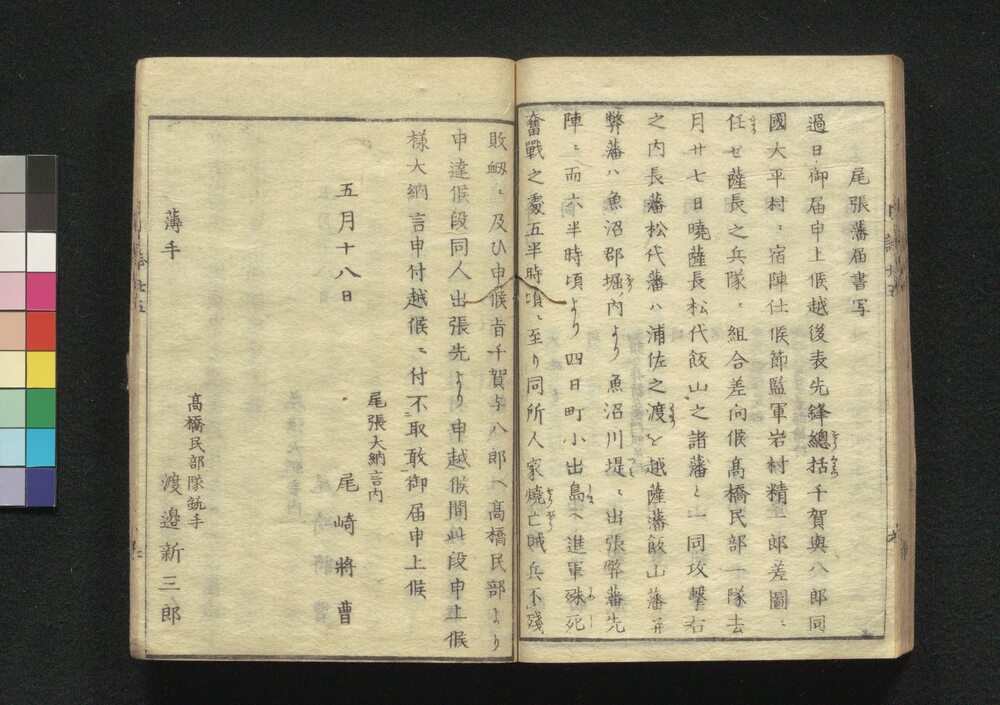 尾張藩届書写
過日御届申上候越後表先鋒總括千賀與八郎同
國大平村ニ宿陣仕候節監軍岩村精一郎差圖ニ
任せ薩長之兵隊ニ組合差向候髙橋民部一隊去
月廿七日曉薩長松代飯山之諸藩と一同攻擊右
之内長藩松代藩ハ浦佐之渡を越薩藩飯山藩并
弊藩ハ魚沼郡堀ノ内より魚沼川堤ニ出張弊藩先
陣ニ而六半時頃より四日町小出島へ進軍殊死
奮戰之處五半時頃ニ至り同所人家燒亡賊兵不殘
敗衂ニ及ひ申候旨千賀与八郎へ髙橋民部より
申達候段同人出張先より申越候間此段申上候
様大納言申付越候ニ付不取敢御届申上候
尾張大納言内
五月十八日 尾崎將曹
髙橋民部隊銃手
薄手 渡邉新三郎